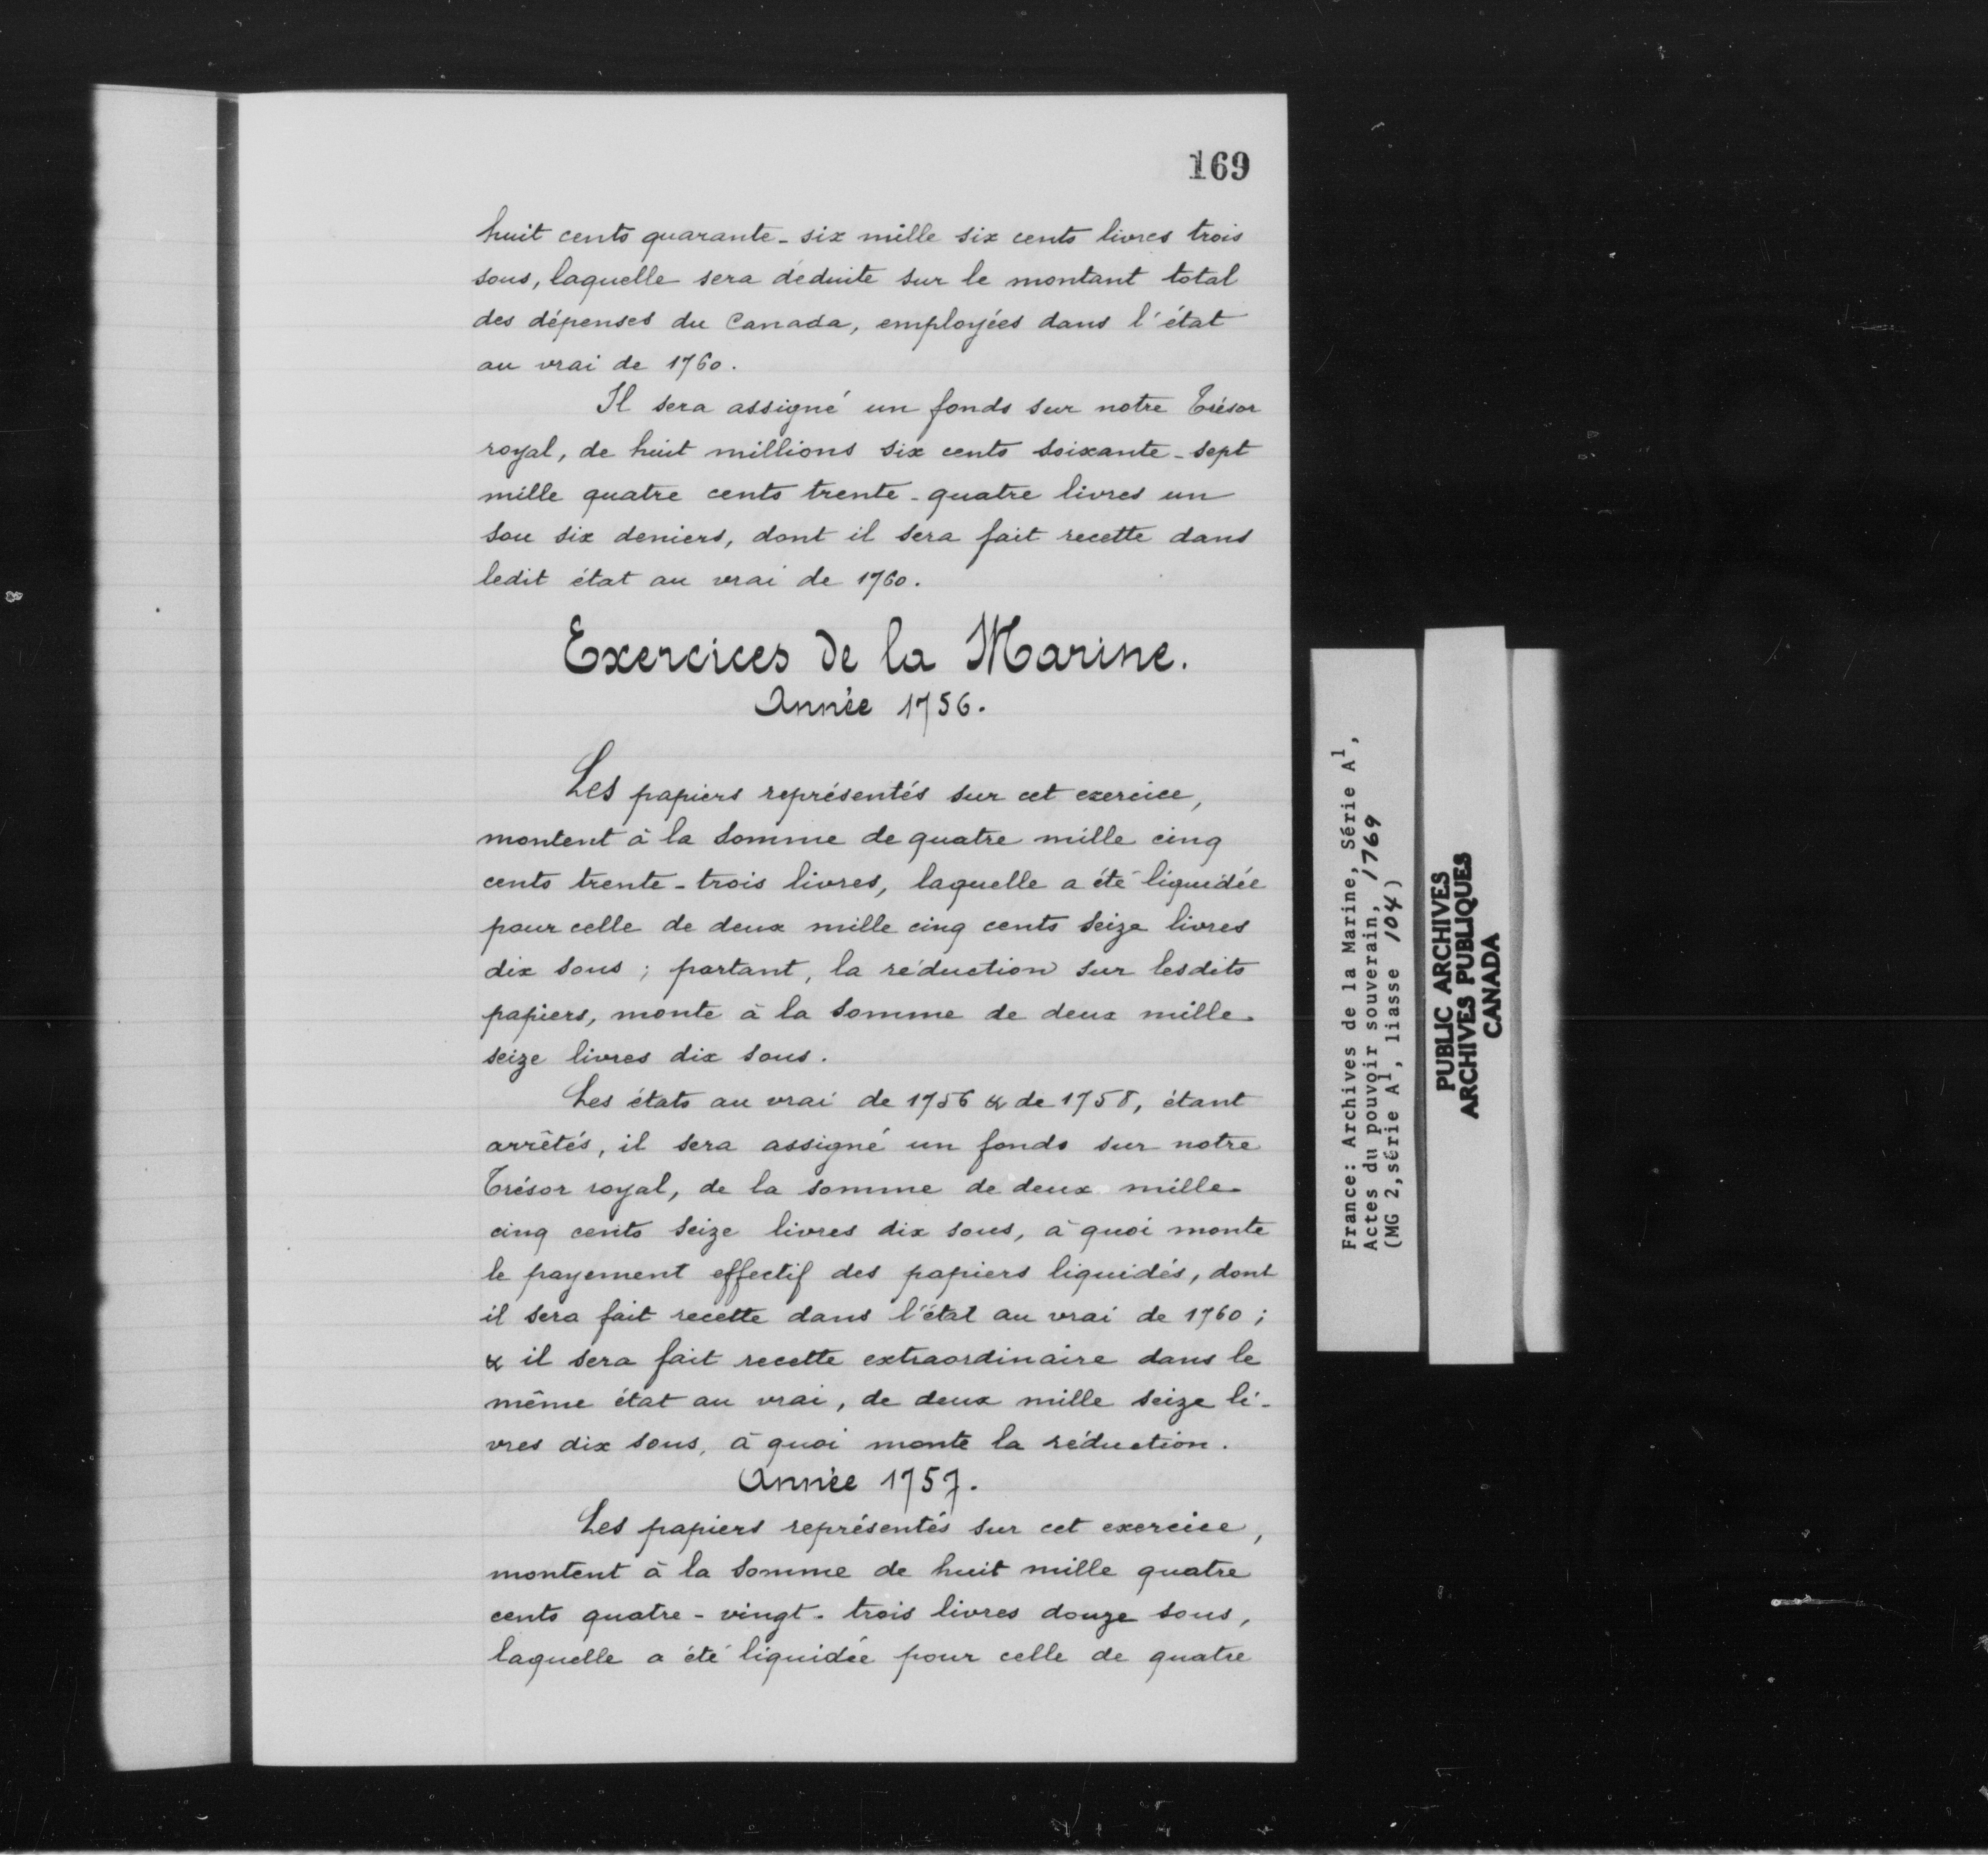 169
huit cents quarante-six mille six cents livres trois
sous, laquelle sera déduite sur le montant total
des dépenses du Canada, employées dans l'état
au vrai de 1760.
Il sera assigné un fonds sur notre Trésor
royal, de huit millions six cents soixante-sept
mille quatre cents trente-quatre livres un
sou six deniers, dont il sera fait recette dans
ledit état au vrai de 1760.
Exercices de la Marine.
Année 1756.
Les papiers représentés sur cet exercice,
montent à la somme de quatre mille cinq
cents trente-trois livres, laquelle a été liquidée
pour celle de deux mille cinq cents seize livres
dix sous ; partant, la réduction sur lesdits
papiers, monte à la somme de deux mille
seize livres dix sous.
Les états au vrai de 1756 & de 1758, étant
arrêtés, il sera assigné un fonds sur notre
Trésor royal, de la somme de deux mille
cinq cents seize livres dix sous, à quoi monte
le payement effectif des papiers liquidés, dont
il sera fait recette dans l'état au vrai de 1760 ;
& il sera fait recette extraordinaire dans le
même état au vrai, de deux mille seize li-
vres dix sous, à quoi monte la réduction.
Année 1757.
Les papiers représentés sur cet exercice,
montent à la somme de huit mille quatre
cents quatre-vingt-trois livres douze sous,
laquelle a été liquidée pour celle de quatre
France: Archives de la Marine, Série A1,
Actes du pouvoir souverain, 1769
(MG 2, série A1, liasse 104)
PUBLIC ARCHIVES
ARCHIVES PUBLIQUES
CANADA